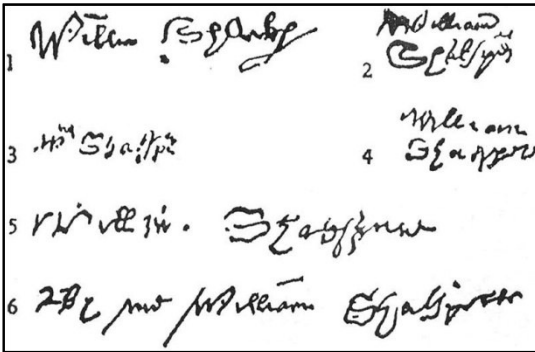 1 Willm Shakp
William
2 Shaksper
3 Wm Shakspe
William
4 Shakspere
5 Willm Shakspere
6 By me William Shakspeare